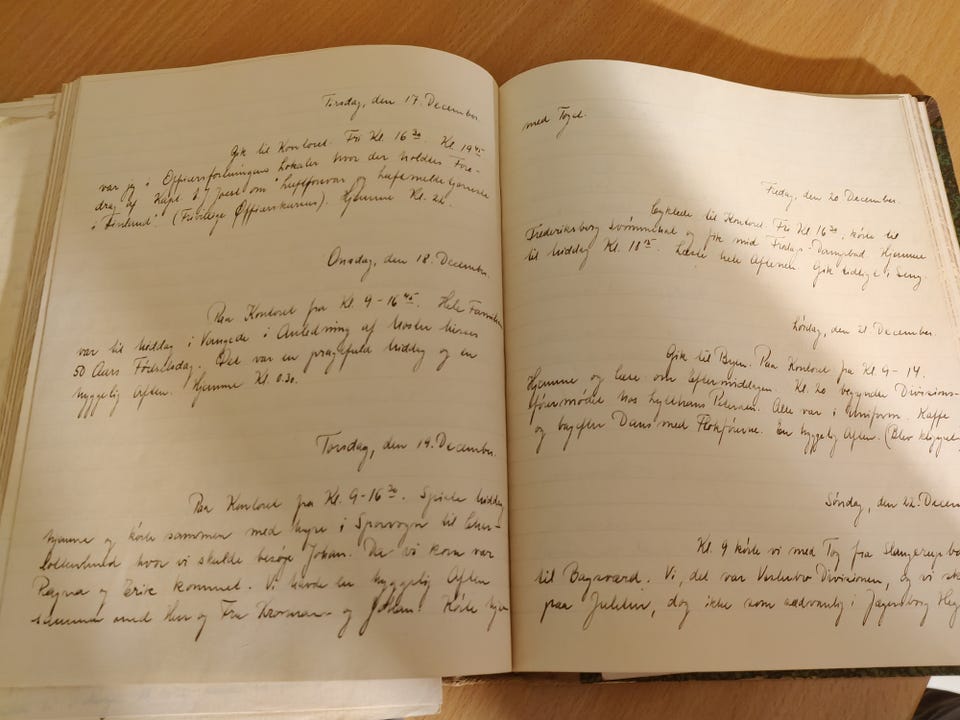 Tirsdag, den 17. December.
Gik til Kontoret. Fri Kl. 16 30. Kl. 19 45
var jeg i Officersforeningens Lokaler hvor der holdtes Fore-
drag af Kapt. om "Luftforsvar og Luftmeldetjeneste
i Finland". (Frivillige Officerskursus). Hjemme Kl. 22.
Onsdag, den 18. December.
Paa Kontoret fra Kl. 9 - 16 45. Hele Familien
var til Middag i Vangede i Anledning af Moster
50 Aars Fødselsdag. Det var en pragtfuld Middag og en
hyggelig Aften. Hjemme Kl. 0.30.
Torsdag, den 19. December.
Paa Kontoret fra Kl. 9 - 16 30. Spiste Middag
hjemme og kørte sammen med i Sporvogn til Char-
lottenlund hvor vi skulde besøge Johan. Da vi kom var
Ragna og Erik kommet. Vi havde en hyggelig Aften
sammen med Herr og Fru og Johan. Kørte hjem
med Toget.
Fredag, den 20. December.
Cyklede til Kontoret. Fri Kl. 16 30, kørte til
Frederiksborg Svømmehal og fik mit Fredags-Dampbad. Hjemme
til Middag Kl. 18 15. Læste hele Aftenen. Gik tidligt i Seng.
Lørdag, den 21. December.
Gik til Byen. Paa Kontoret fra Kl. 9 - 14.
Hjemme og læse om Eftermiddagen. Kl. 20 begyndte Divisions-
førermødet hos Petersen. Alle var i Uniform. Kaffe
og bagefter Dans med Flokførerne. En hyggelig Aften. (Blev klippet
Søndag, den 22. Decem
Kl. 9 kørte vi med Tog fra Slangerupba
til Bagsværd. Vi, det var Vesterbro Divisionen, og vi sk
paa Juletur, dog ikke som sædvanlig i Jægersborg Heg